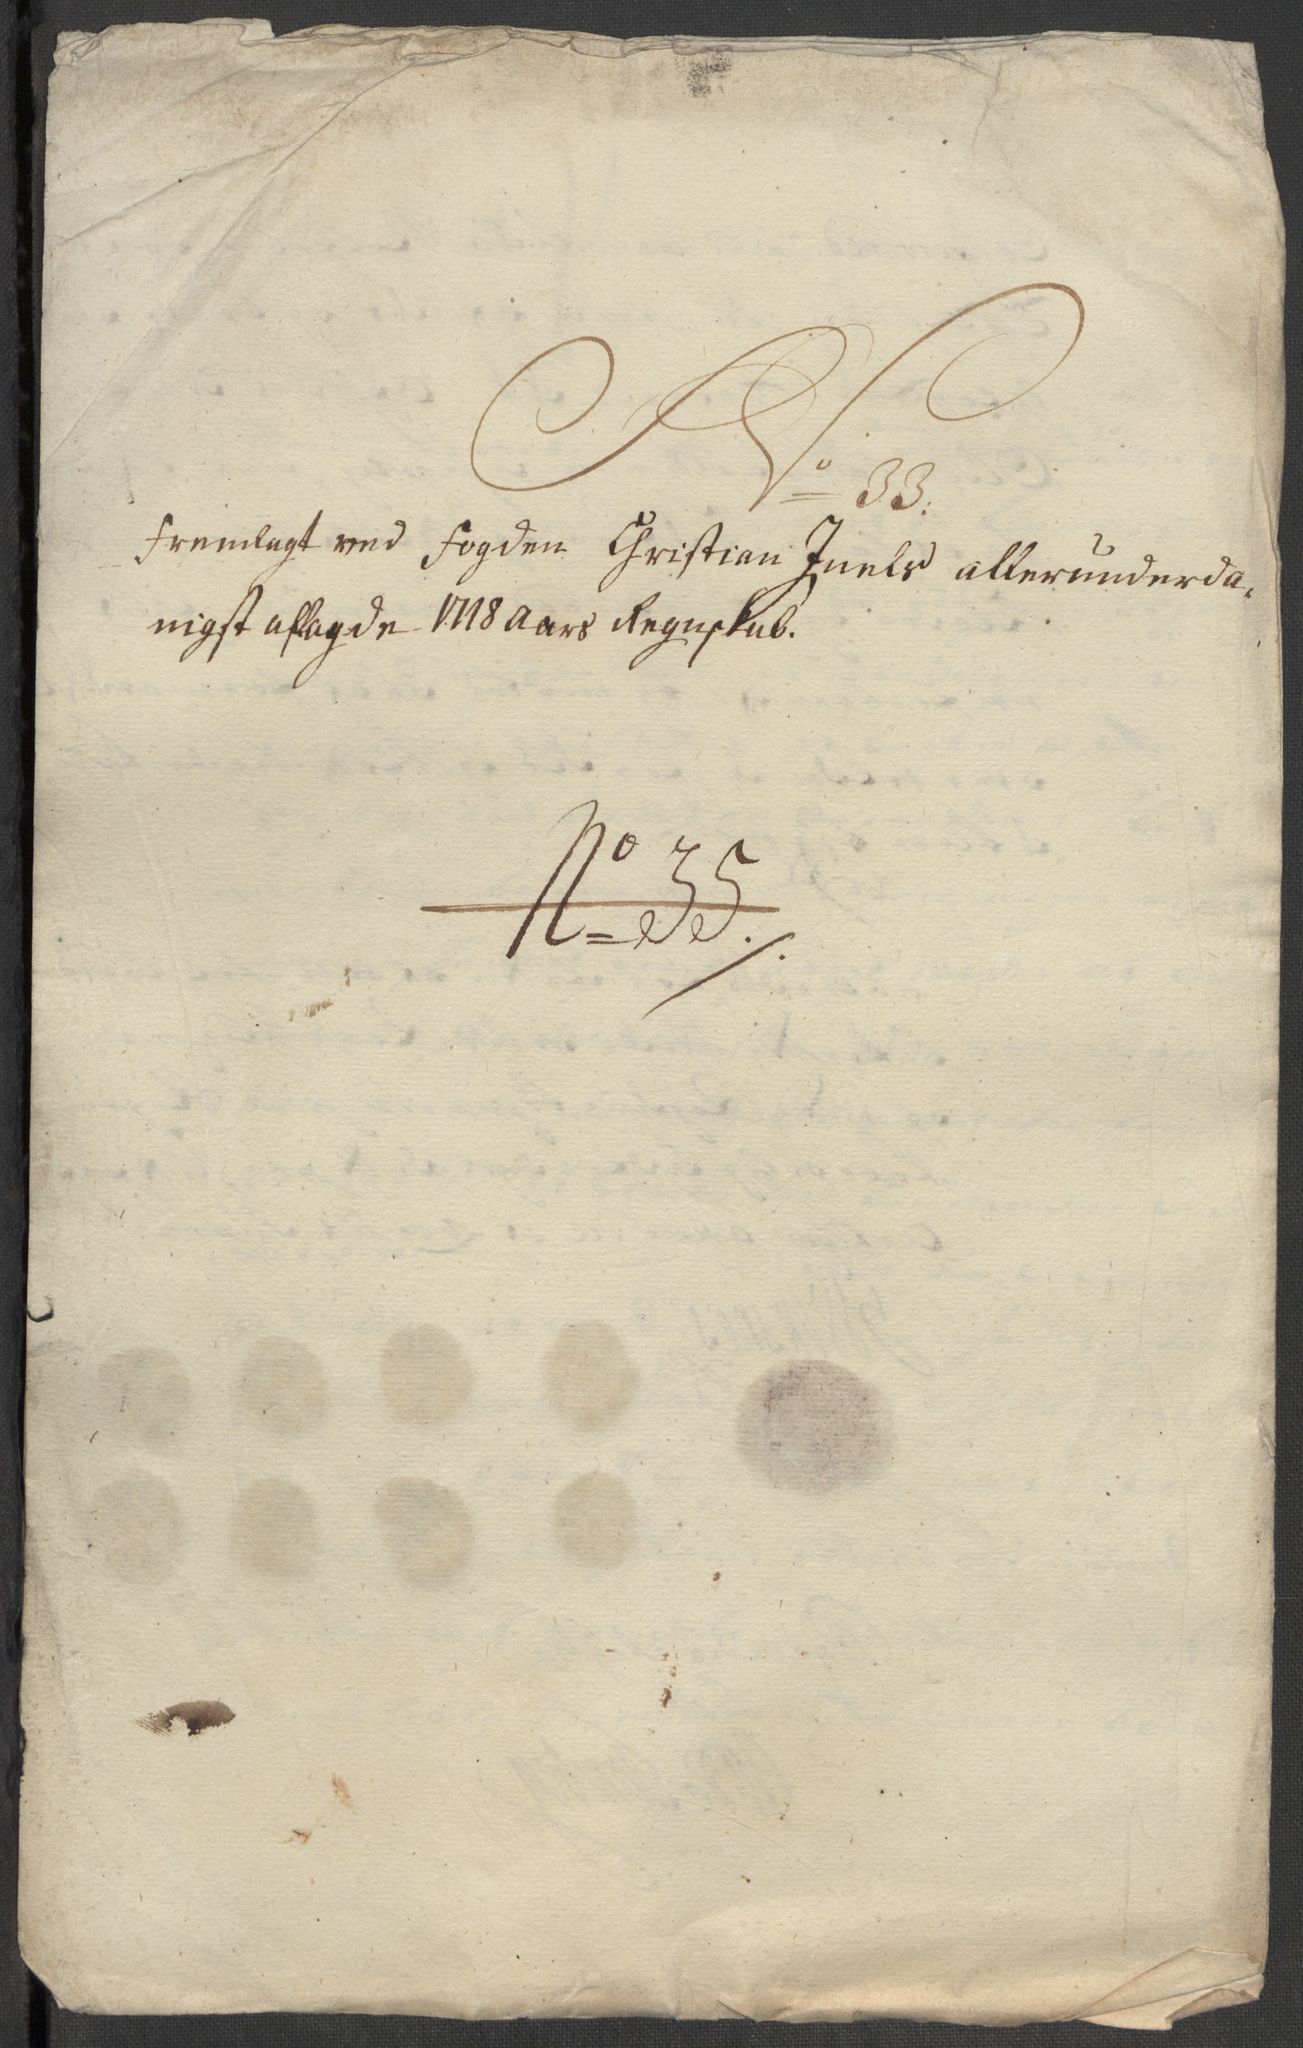 No 33.
Fremlagt ved Fogden Christian Juels allerunderda,
nigst aflagde 1718 Aars Regnskab.
No 35.